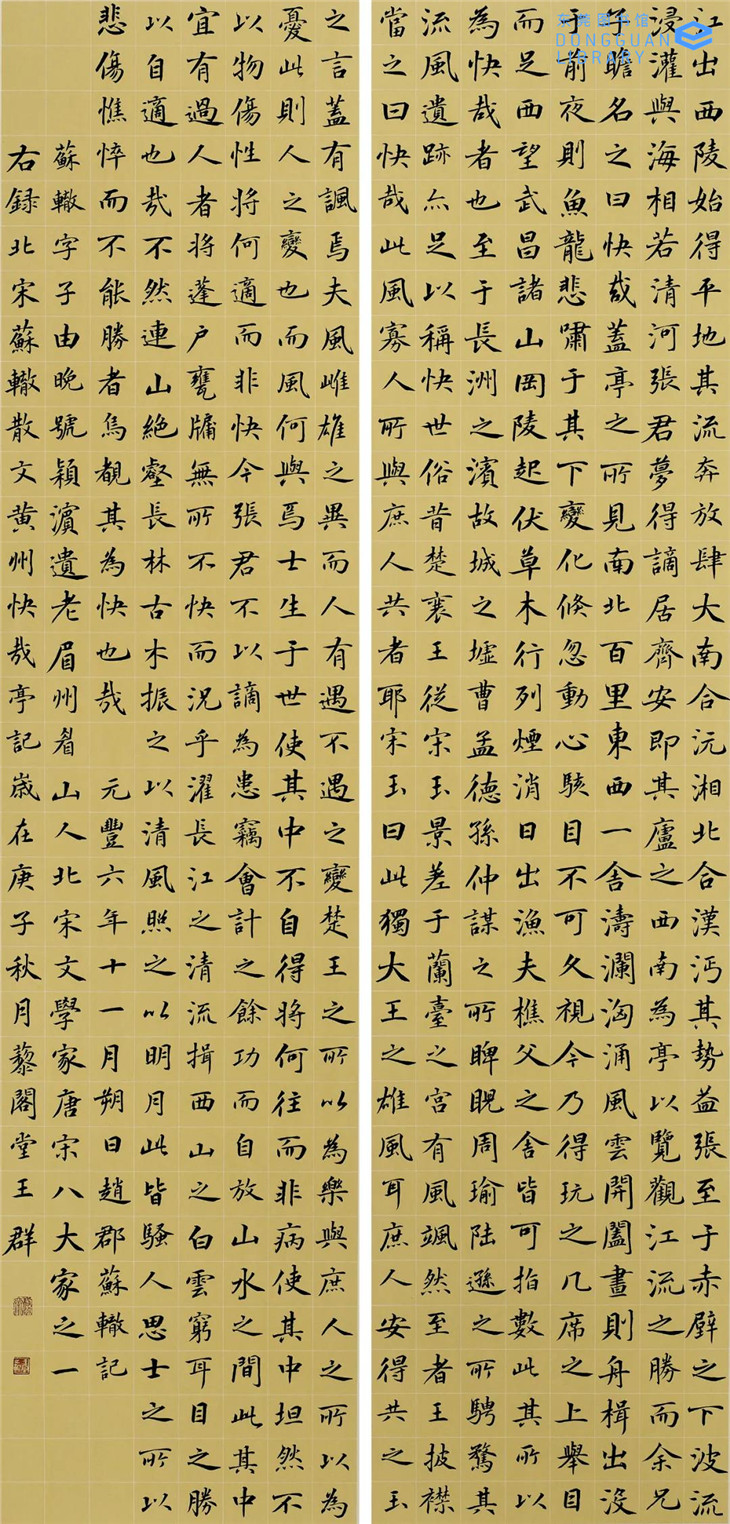 东莞图书馆
DUNGGUAN
LIBRARY
江出西陵始得平地其流奔放肆大南合沅湘北合漢沔其勢益張至于赤壁之下波流
浸灌與海相若清河張君夢得謫居齊安即其廬之西南為亭以覽觀江流之勝而余兄
子瞻名之曰快哉蓋亭之所見南北百里東西一舍濤瀾洶涌風雲開闔晝則舟楫出沒
于前夜則魚龍悲嘯于其下變化倏忽動心駭目不可久視今乃得玩之几席之上舉目
而足西望武昌諸山岡陵起伏草木行列煙消日出漁夫樵父之舍皆可指數此其所以
為快哉者也至于長洲之濱故城之墟曹孟德孫仲謀之所睥睨周瑜陸遜之所騁騖其
流風遺跡亦足以稱快世俗昔楚襄王從宋玉景差于蘭臺之宮有風颯然至者王披襟
當之曰快哉此風寡人所與庶人共者耶宋玉曰此獨大王之雄風耳庶人安得共之玉
之言蓋有諷焉夫風雌雄之異而人有遇不遇之變楚王之所以為樂與庶人之所以為
憂此則人之變也而風何與焉士生于世使其中不自得將何往而非病使其中坦然不
以物傷性將何適而非快今張君不以謫為患竊會計之餘功而自放山水之間此其中
宜有過人者將蓬戶甕牖無所不快而況乎濯長江之清流揖西山之白雲窮耳目之勝
以自適也哉不然連山絕壑長林古木振之以清風照之以明月此皆騷人思士之所以
悲傷憔悴而不能勝者烏覩其為快也哉 元豐六年十一月朔日趙郡蘇轍記
蘇轍字子由晚號潁濱遺老眉州眉山人北宋文學家唐宋八大家之一
右錄北宋蘇轍散文黃州快哉亭記歲在庚子秋月藜閣堂王群